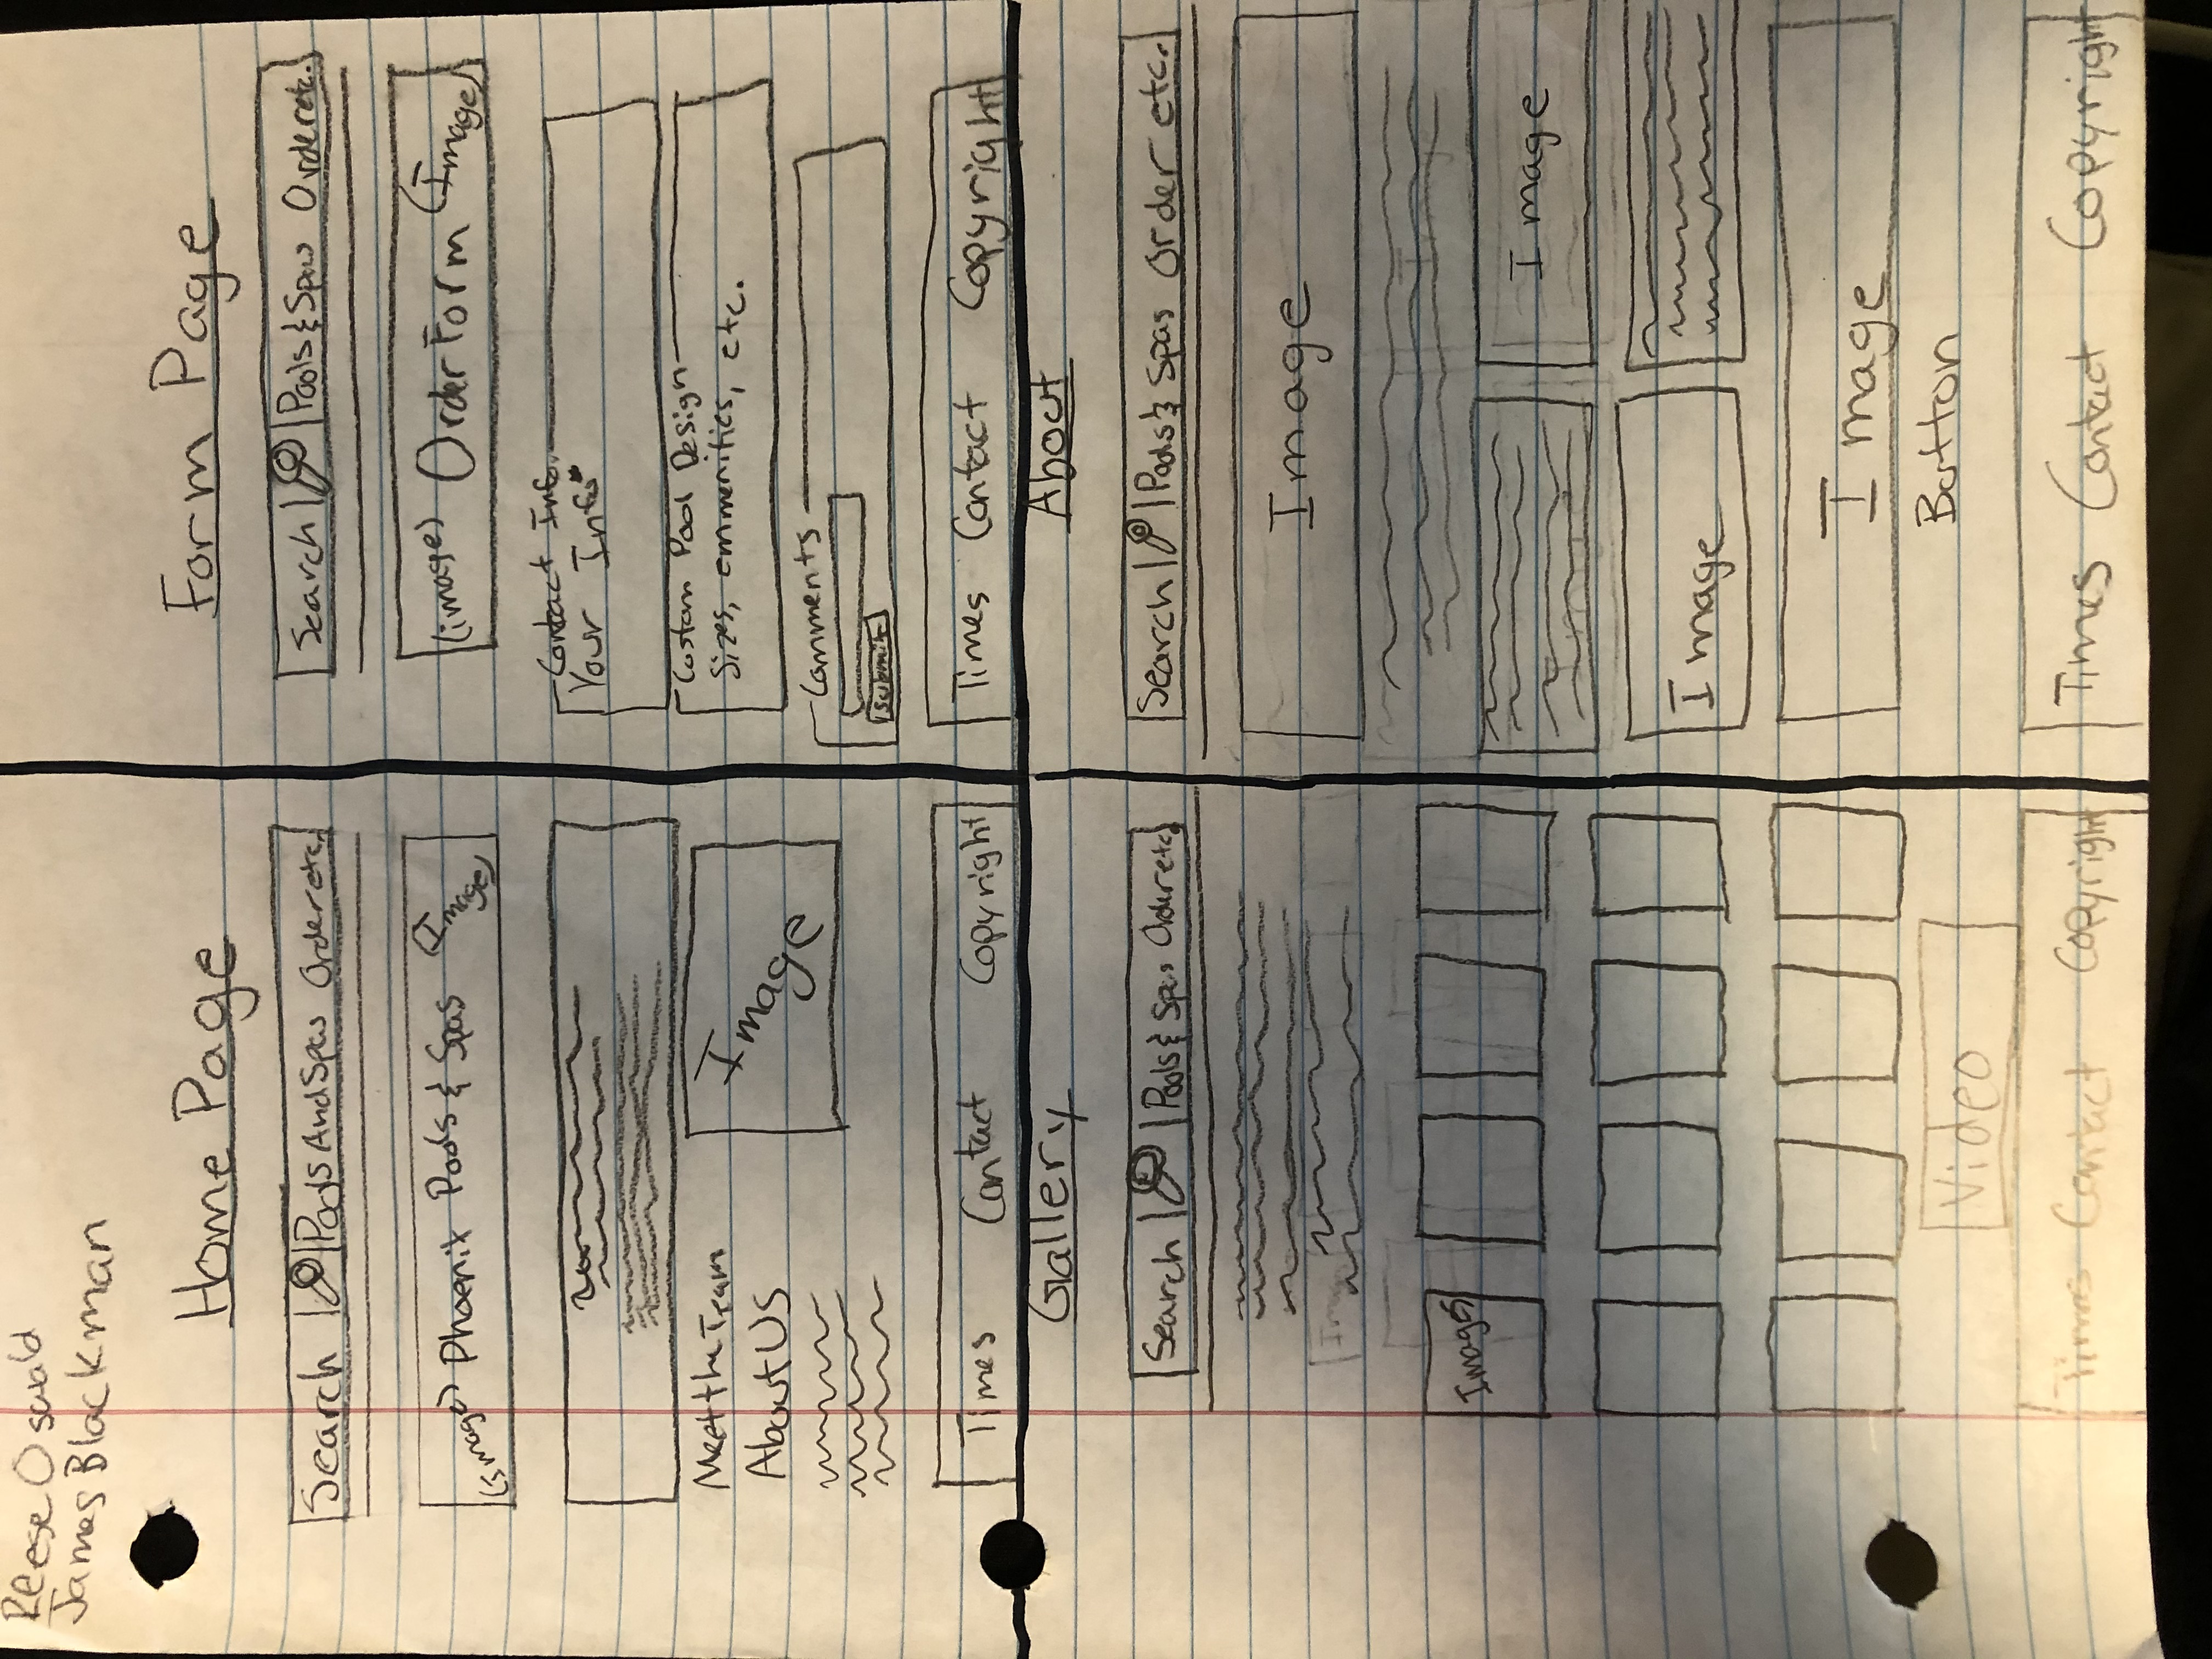 Reese Oswald
James Blackman
Home Page
Search | Pools And Spas Order etc.
(Image) Phoenix Pools & Spas (Image)
Meet the Team
About Us
Image
Times Contact Copyright
Form Page
Search | Pools & Spas Order etc.
(image) Order Form (Image)
Contact Info.
Your Info
Custom Pool Design
Sizes, emmenities, etc.
Comments
Submit
Times Contact Copyright
Gallery
Search | Pools & Spas Order etc.
Images
Video
Times Contact Copyright
About
Search | Pools & Spas Order etc.
Image
Image
Image
Image
Button
Times Contact Copyright